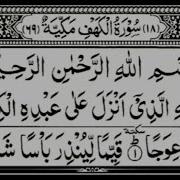 (۱۸) سُوْرَةُ الْكَهْفِ مَكِّيَّةٌ (۶۹)
اللّٰهِ الرَّحْمٰنِ الرَّحِيْمِ
الَّذِيْٓ اَنْزَلَ عَلٰى عَبْدِهِ
عِوَجًا ۱ قَيِّمًا لِّيُنْذِرَ بَاْسًا